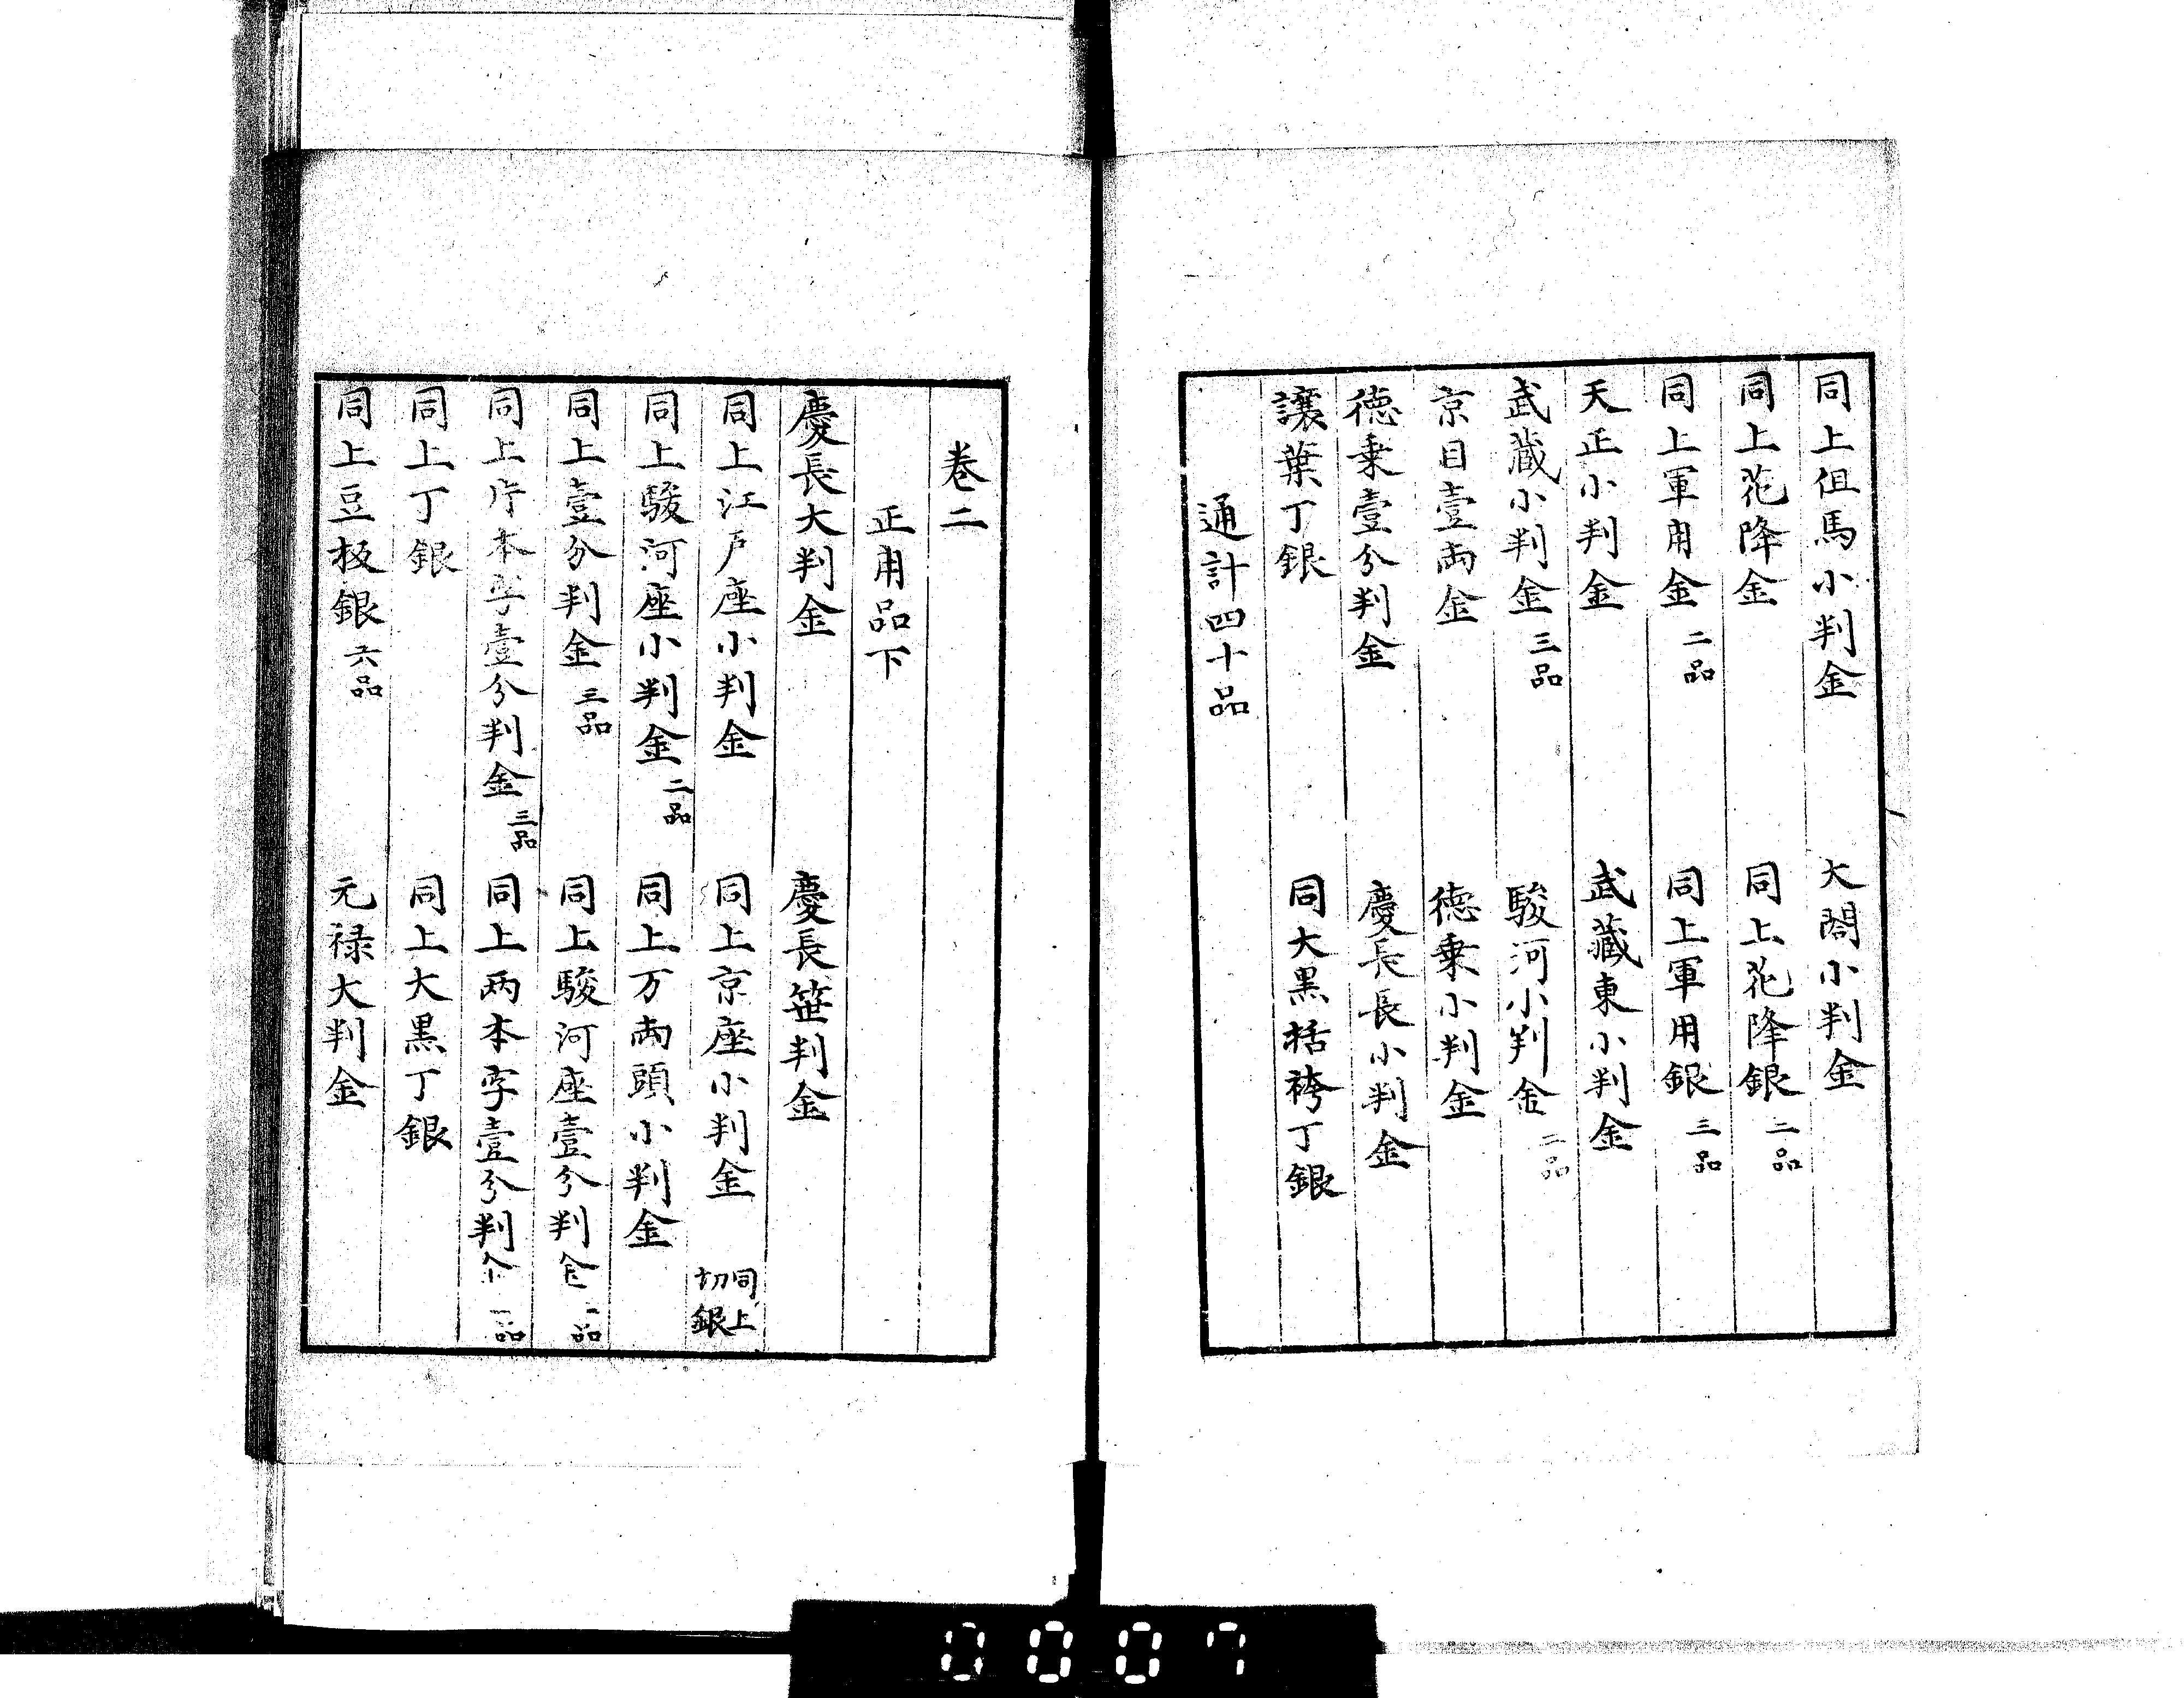 同上但馬小判金　大閤小判金
同上花降金　同上花降銀二品
同上軍用金二品　同上軍用銀三品
天正小判金　武藏東小判金
武藏小判金三品　駿河小判金二品
京目壹両金　徳乗小判金
徳乗壹分判金　慶長長小判金
譲葉丁銀　同大黒括袴丁銀
通計四十品
巻二
正用品下
慶長大判金　慶長笹判金
同上江戸座小判金　同上京座小判金　同上切銀
同上駿河座小判金二品　同上万両頭小判金
同上壹分判金三品　同上駿河座壹分判金品
同上片本字壹分判金三品　同上両本字壹分判金品
同上丁銀　同上大黒丁銀
同上豆板銀六品　元禄大判金
0007